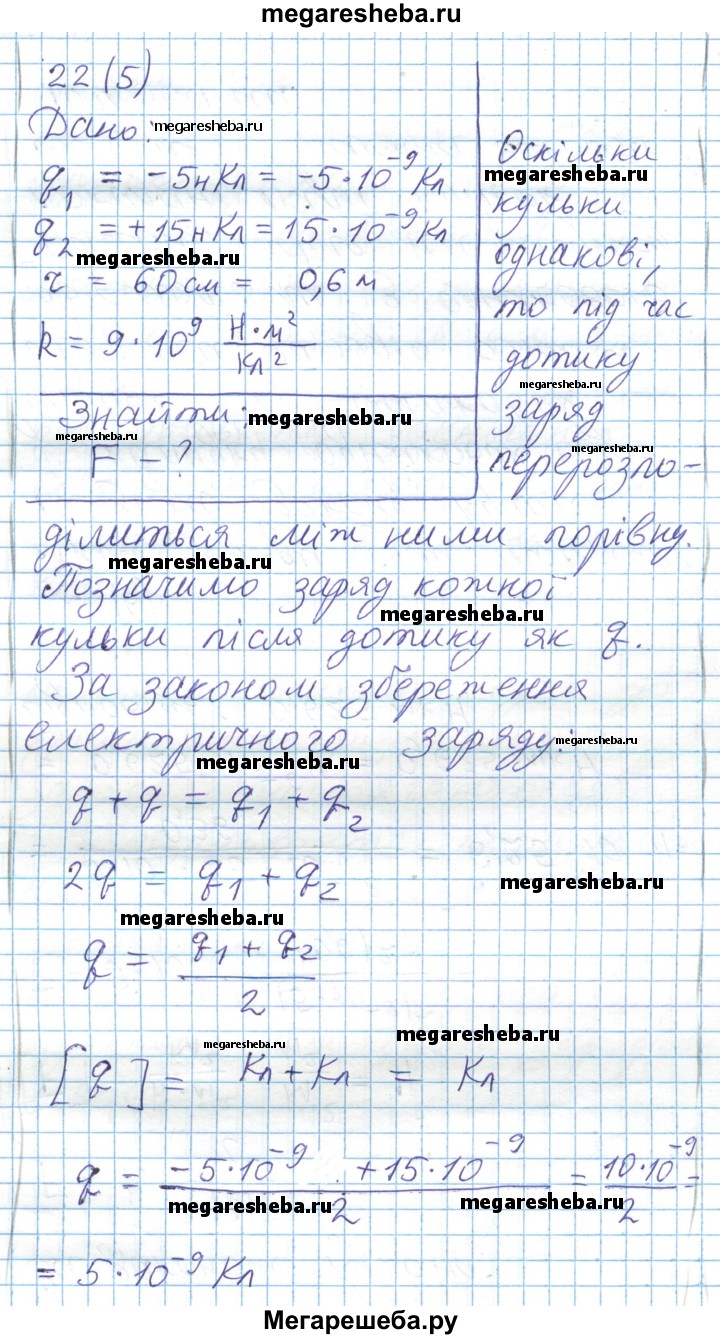 megaresheba.ru
22 (5)
Дано: megaresheba.ru
q₁ = -5нКл = -5·10⁻⁹Кл
q₂ = +15нКл = 15·10⁻⁹Кл
megaresheba.ru
r = 60см = 0,6м
k = 9·10⁹ Н·м²/Кл²
Знайти: megaresheba.ru
megaresheba.ru
F - ?
Оскільки
megaresheba.ru
кульки
однакові,
то під час
дотику
megaresheba.ru
заряд
megaresheba.ru
перерозпо-
ділиться між ними порівну.
megaresheba.ru
Позначимо заряд кожної
megaresheba.ru
кульки після дотику як q.
За законом збереження
електричного заряду: megaresheba.ru
megaresheba.ru
q + q = q₁ + q₂
2q = q₁ + q₂ megaresheba.ru
megaresheba.ru
q = (q₁ + q₂)/2
megaresheba.ru megaresheba.ru
[q] = Кл + Кл = Кл
q = (-5·10⁻⁹ + 15·10⁻⁹)/2 = 10·10⁻⁹/2 =
megaresheba.ru megaresheba.ru
= 5·10⁻⁹ Кл
Мегарешеба.ру